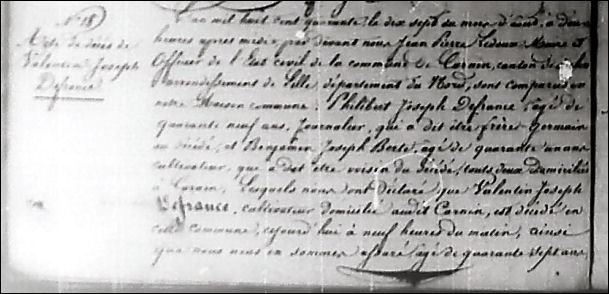 N° 18
Acte de décès de
Valentin Joseph
Defrance
L'an mil huit cent quarante le dix sept du mois d'août, à deux
heures après midi, par devant nous Jean Pierre Ledeux Maire et
Officier de l'Etat civil de la commune de Carnin, canton de
arrondissement de Lille, département du Nord, sont comparus en
notre Maison commune, Philibert Joseph Defrance, agé de
quarante neuf ans, Journalier, qui a dit être frère Germain
au décédé, et Benjamin Joseph Berte, agé de quarante un ans
cultivateur, que a dit être voisin du décédé, touts deux domiciliés
à Carnin, Lesquels nous ont déclaré que Valentin Joseph
Defrance, cultivateur domicilié audit Carnin, est décédé en
cette commune, cejourd'hui à neuf heures du matin, ainsi
que nous nous en sommes assuré, agé de quarante sept ans